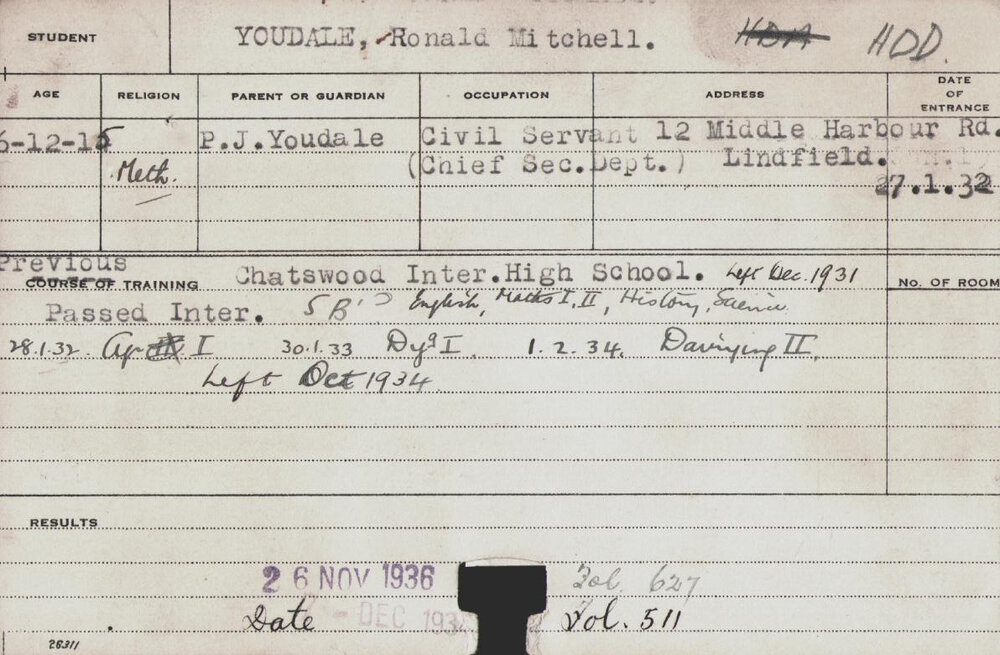 STUDENT YOUDALE, Ronald Mitchell. HDA HDD.
AGE RELIGION PARENT OR GUARDIAN OCCUPATION ADDRESS DATE OF ENTRANCE
6-12-15 Meth. P.J.Youdale Civil Servant 12 Middle Harbour Rd.
(Chief Sec.Dept.) Lindfield.
27.1.32
Previous
COURSE OF TRAINING Chatswood Inter.High School. Left Dec. 1931 No. OF ROOM
Passed Inter. 5 B's English, Maths I, II, History, Science
28.1.32. I 30.1.33 Dyg I 1.2.34. II
Left Oct 1934
RESULTS
26 NOV 1936 Fol. 627
Date - DEC 193 Vol. 511
26311